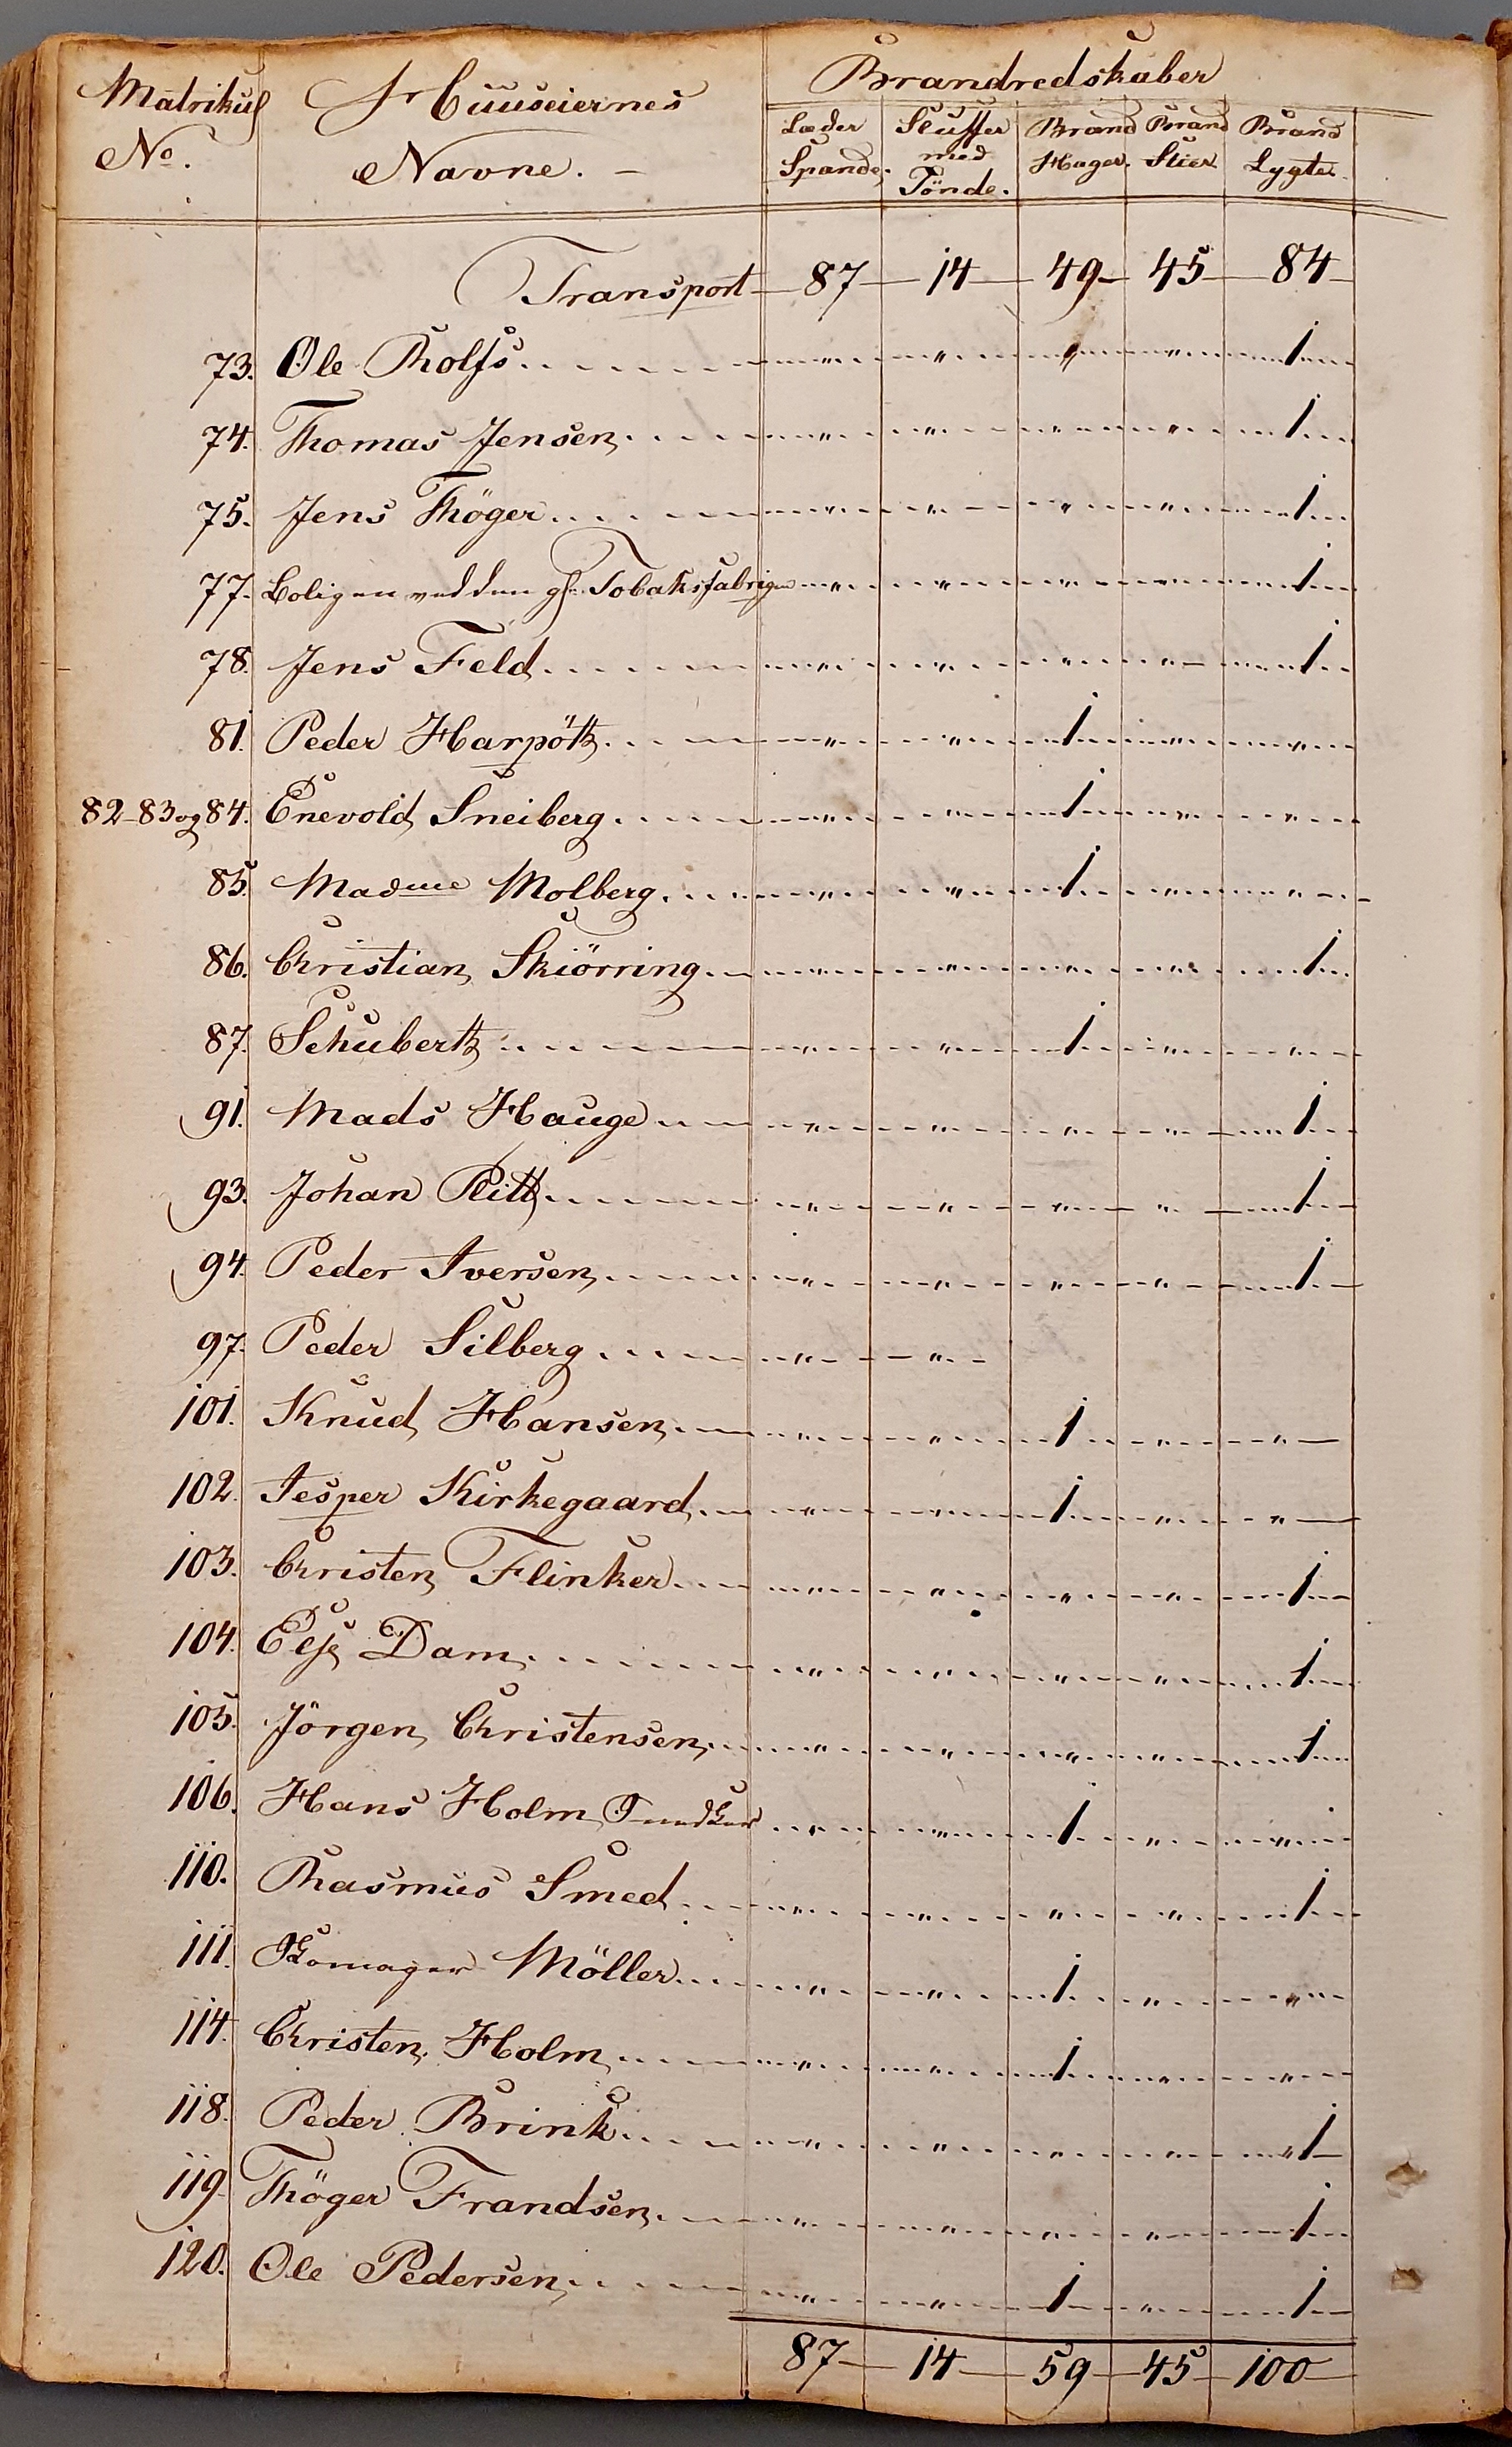 Brandredskaber
Matrikul No. Huuseiernes Navne. – Læder Spande. Sluffer med Tönde. Brand Hager. Brand Stier Brand Lygter
Transport 87 14 49 45 84
73. Ole Rolfs " " " " 1
74. Thomas Jensen " " " " 1
75. Jens Thöger " " " " 1
77. Boligen ved den gl. Tobaksfabrigen " " " " 1
78. Jens Feld " " " " 1
81. Peder Harpöth " " 1 " "
82-83 og 84. Enevold Sneiberg " " 1 " "
85. Madme Molberg " " 1 " "
86. Christian Skiörring " " " " 1
87. Schubertz " " 1 " "
91. Mads Hauge " " " " 1
93. Johan Ritt " " " " 1
94. Peder Iversen " " " " 1
97. Peder Silberg " "
101. Knud Hansen " " 1 " "
102. Jesper Kirkegaard " " 1 " "
103. Christen Flinker " " " " 1
104. Else Dam " " " " 1
105. Jörgen Christensen " " " " 1
106. Hans Holm Snedker " " 1 " "
110. Rasmus Smed " " " " 1
111. Skomager Möller " " 1 " "
114. Christen Holm " " 1 " "
118. Peder Brink " " " " 1
119. Thöger Frandsen " " " " 1
120. Ole Pedersen " " 1 " 1
87 14 59 45 100